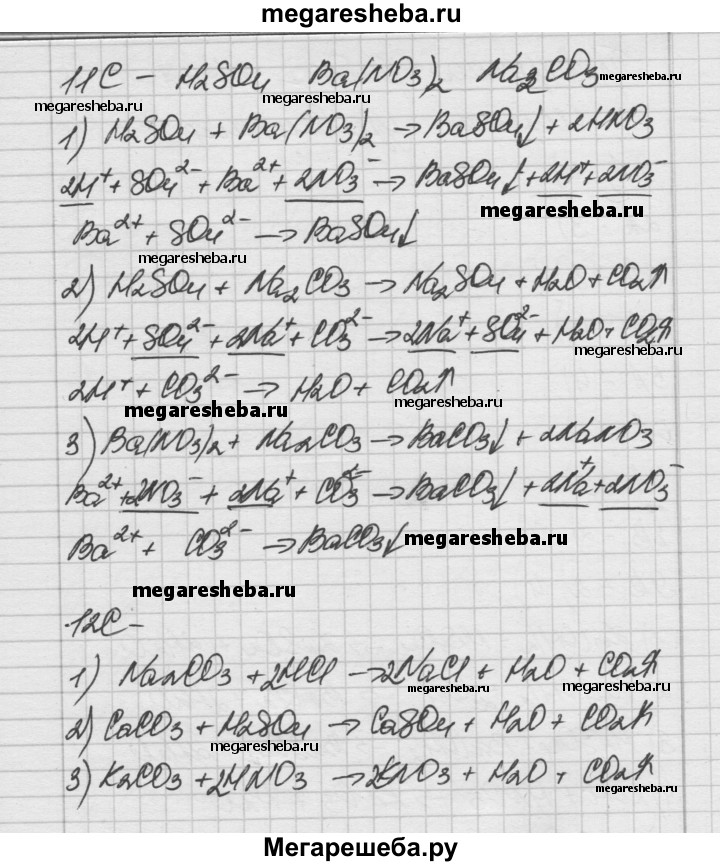 megaresheba.ru
11С – H2SO4 Ba(NO3)2 Na2CO3 megaresheba.ru
megaresheba.ru megaresheba.ru
1) H2SO4 + Ba(NO3)2 → BaSO4↓ + 2HNO3
2H⁺ + SO4²⁻ + Ba²⁺ + 2NO3⁻ → BaSO4↓ + 2H⁺ + 2NO3⁻
megaresheba.ru
Ba²⁺ + SO4²⁻ → BaSO4↓
megaresheba.ru
2) H2SO4 + Na2CO3 → Na2SO4 + H2O + CO2↑
2H⁺ + SO4²⁻ + 2Na⁺ + CO3²⁻ → 2Na⁺ + SO4²⁻ + H2O + CO2↑
megaresheba.ru
2H⁺ + CO3²⁻ → H2O + CO2↑
megaresheba.ru megaresheba.ru
3) Ba(NO3)2 + Na2CO3 → BaCO3↓ + 2NaNO3
Ba²⁺ + 2NO3⁻ + 2Na⁺ + CO3²⁻ → BaCO3↓ + 2Na⁺ + 2NO3⁻
Ba²⁺ + CO3²⁻ → BaCO3↓ megaresheba.ru
megaresheba.ru
12С –
1) Na2CO3 + 2HCl → 2NaCl + H2O + CO2↑
megaresheba.ru megaresheba.ru
2) CaCO3 + H2SO4 → CaSO4 + H2O + CO2↑
megaresheba.ru
3) K2CO3 + 2HNO3 → 2KNO3 + H2O + CO2↑
megaresheba.ru
Мегарешеба.ру